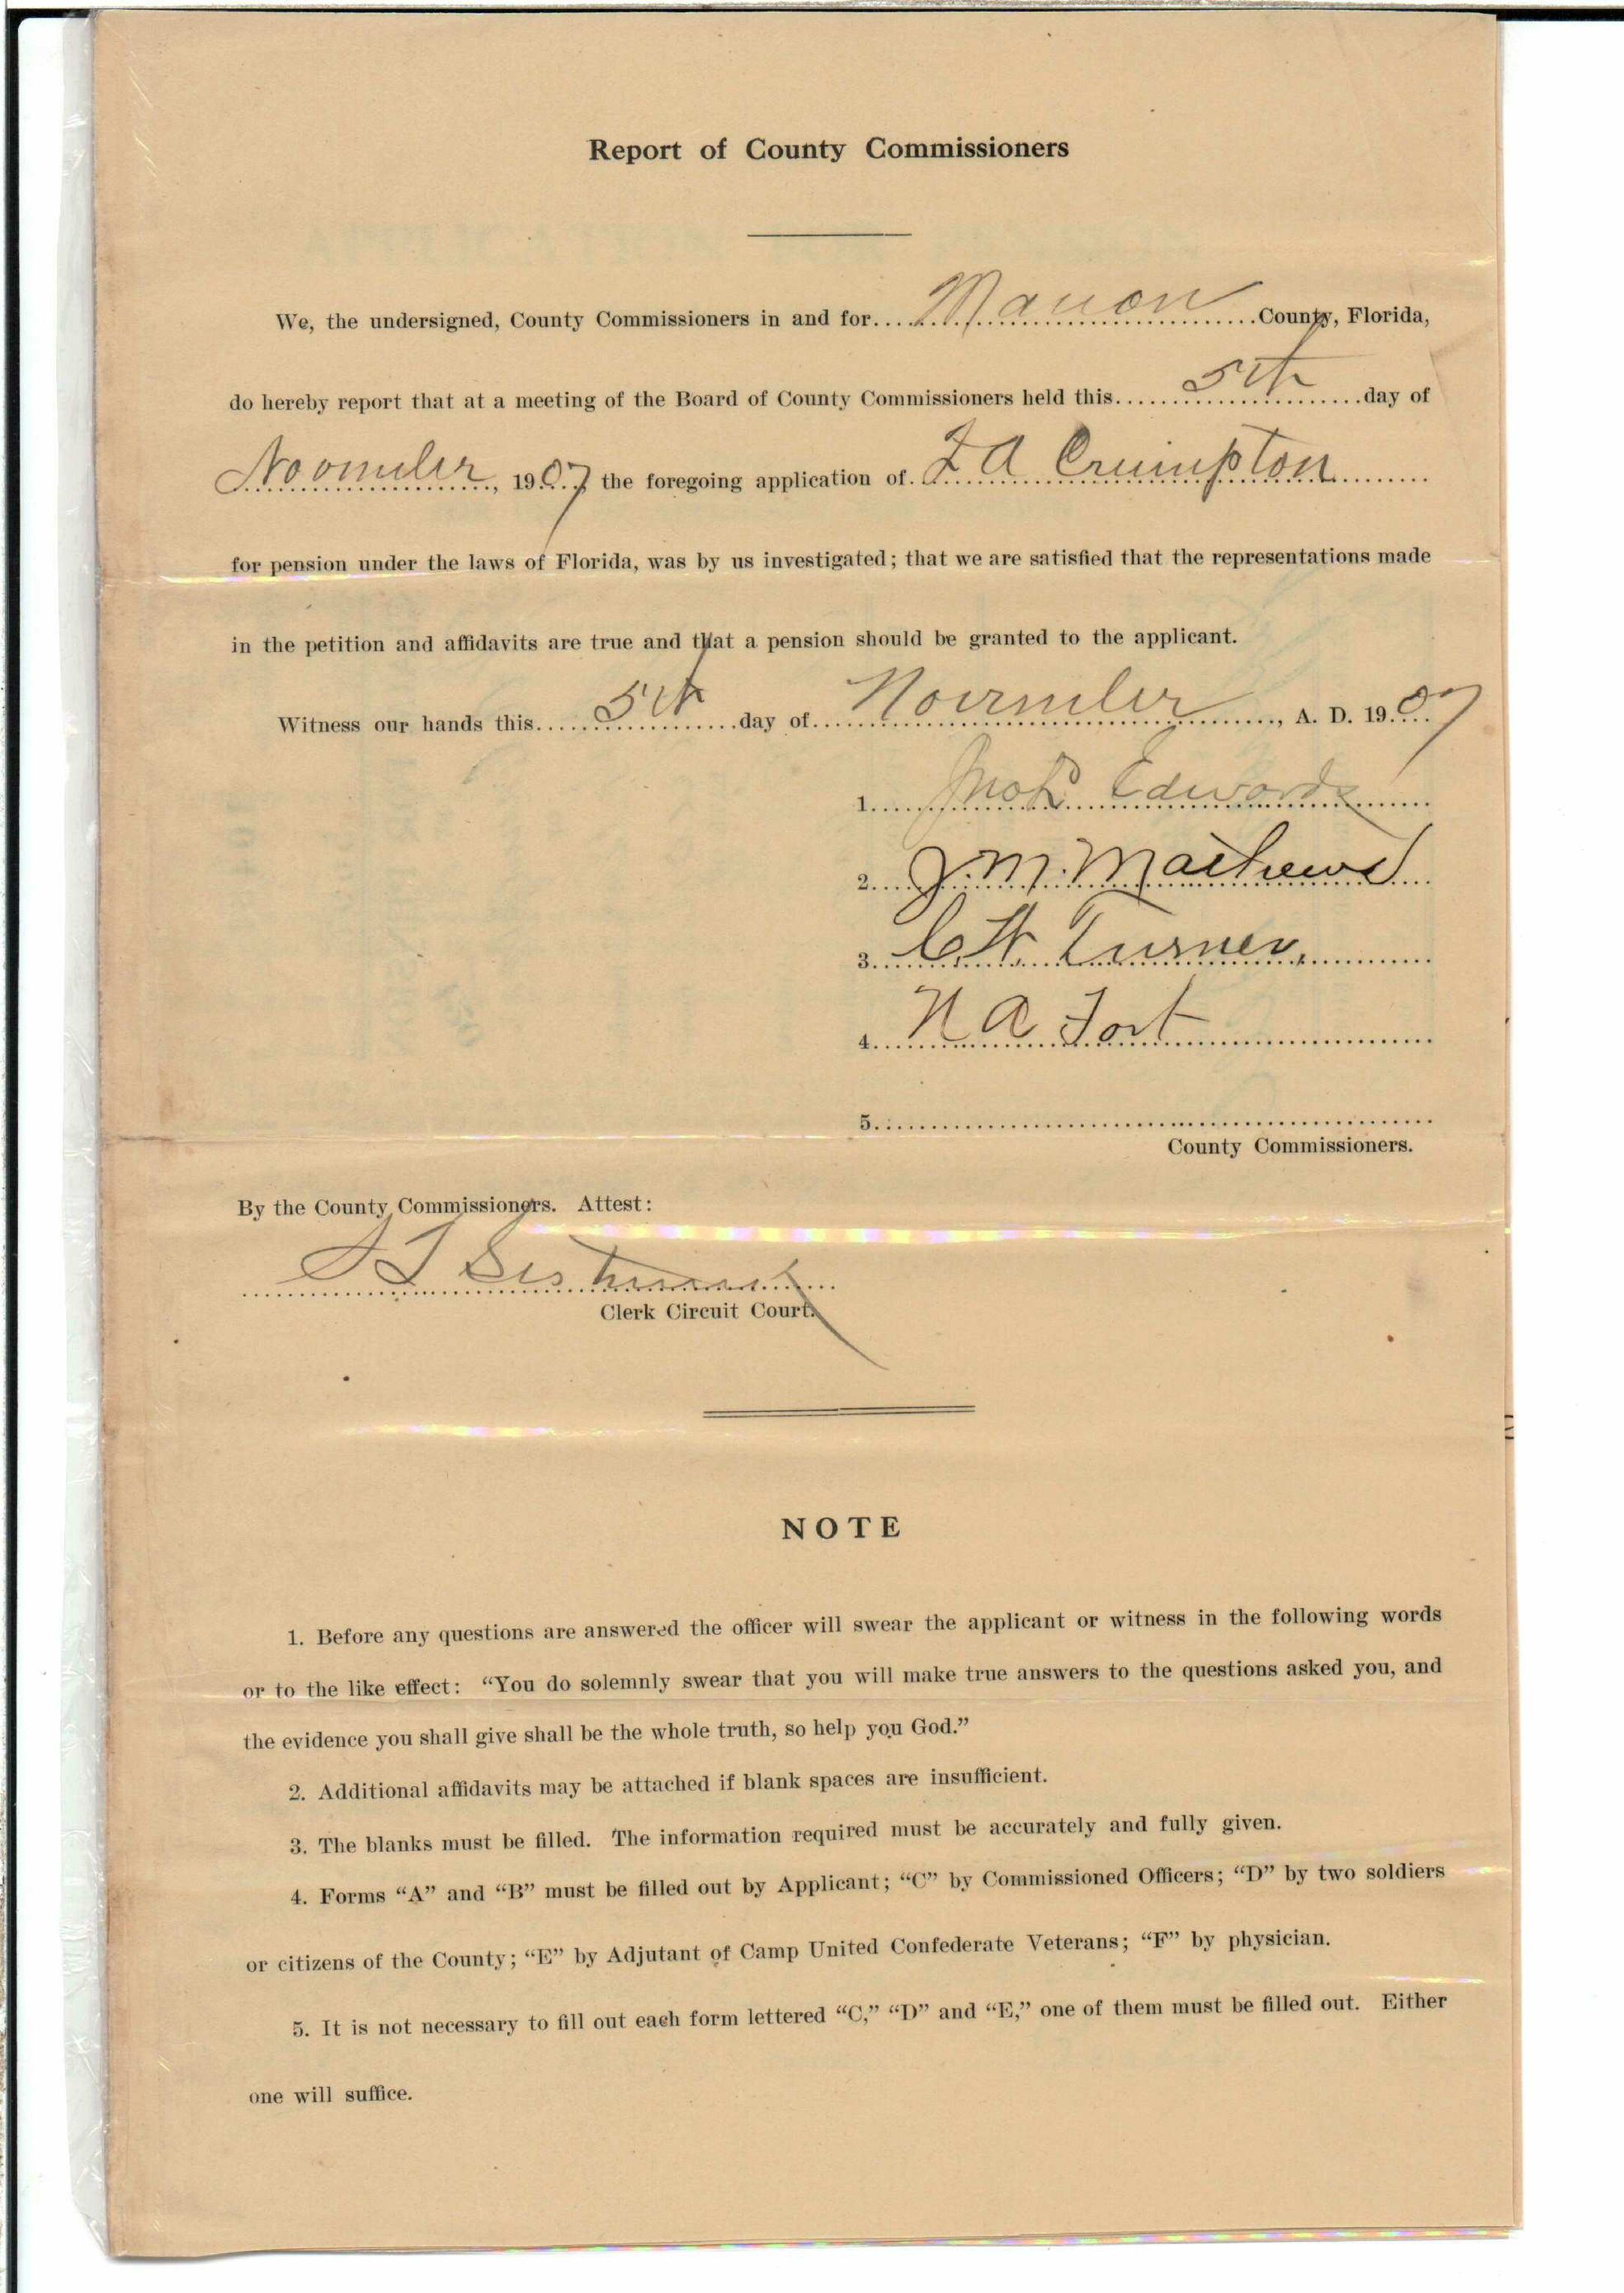 Report of County Commissioners
We, the undersigned, County Commissioners in and for Marion County, Florida,
do hereby report that at a meeting of the Board of County Commissioners held this 5th day of
November, 1907 the foregoing application of Crumpton
for pension under the laws of Florida, was by us investigated; that we are satisfied that the representations made
in the petition and affidavits are true and that a pension should be granted to the applicant.
Witness our hands this 5th day of November, A. D. 1907
1. Edwards
2. J. M. Mathews
3. C W Turner
4. N A Fort
5.
County Commissioners.
By the County Commissioners. Attest:
Clerk Circuit Court.
NOTE
1. Before any questions are answered the officer will swear the applicant or witness in the following words
or to the like effect: “You do solemnly swear that you will make true answers to the questions asked you, and
the evidence you shall give shall be the whole truth, so help you God.”
2. Additional affidavits may be attached if blank spaces are insufficient.
3. The blanks must be filled. The information required must be accurately and fully given.
4. Forms “A” and “B” must be filled out by Applicant; “C” by Commissioned Officers; “D” by two soldiers
or citizens of the County; “E” by Adjutant of Camp United Confederate Veterans; “F” by physician.
5. It is not necessary to fill out each form lettered “C,” “D” and “E,” one of them must be filled out. Either
one will suffice.